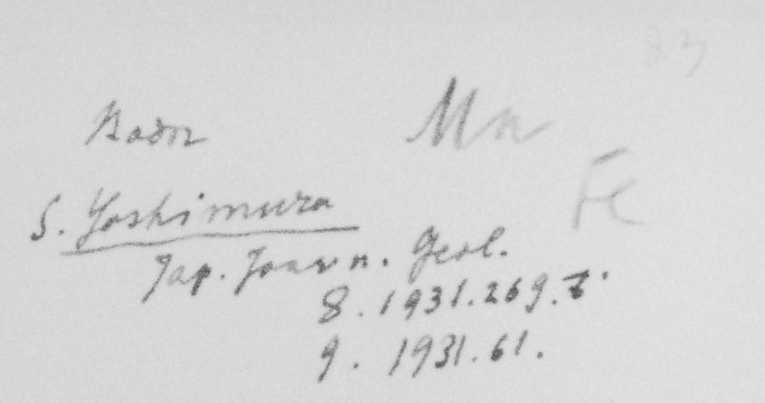 Mn
Fe
S. Yoshimura
Jap. Journ. Geol.
8. 1931. 269.
9. 1931. 61.